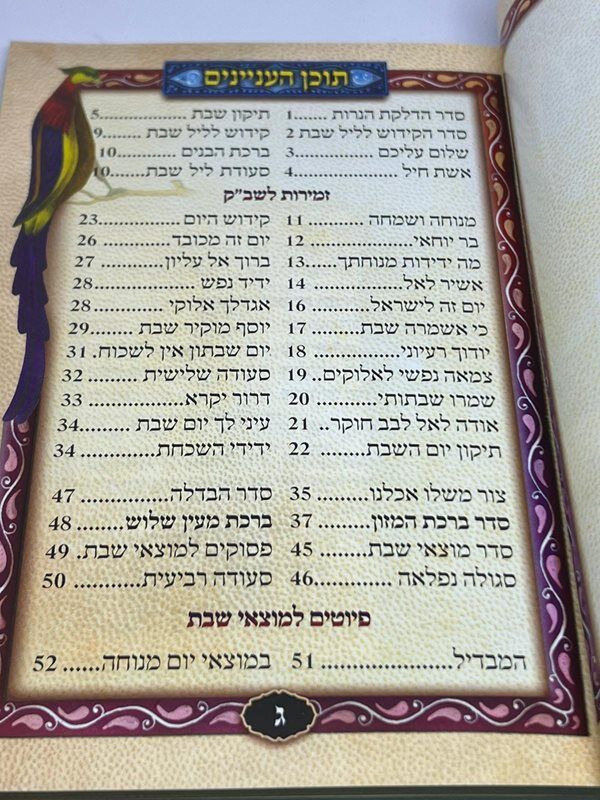 תוכן העניינים
סדר הדלקת הנרות ......1 תיקון שבת ..................5
סדר הקידוש לליל שבת 2 קידוש לליל שבת ........9
שלום עליכם ..............3 ברכת הבנים ............10
אשת חיל ..................4 סעודת ליל שבת.......10
זמירות לשב״ק
מנוחה ושמחה .......... 11 קידוש היום ...............23
בר יוחאי................... 12 יום זה מכובד............ 26
מה ידידות מנוחתך......13 ברוך אל עליון........... 27
אשיר לאל................. 14 ידיד נפש .................. 28
יום זה לישראל........... 16 אגדלך אלוקי ............ 28
כי אשמרה שבת......... 17 יוסף מוקיר שבת ....... 29
יודוך רעיוני............... 18 יום שבתון אין לשכוח. 31
צמאה נפשי לאלוקים.. 19 סעודה שלישית ......... 32
שמרו שבתותי............ 20 דרור יקרא................. 33
אודה לאל לבב חוקר.. 21 עיני לך יום שבת .........34
תיקון יום השבת......... 22 ידידי השכחת............. 34
צור משלו אכלנו......... 35 סדר הבדלה............... 47
סדר ברכת המזון........ 37 ברכת מעין שלוש....... 48
סדר מוצאי שבת........ 45 פסוקים למוצאי שבת. 49
סגולה נפלאה ............46 סעודה רביעית........... 50
פיוטים למוצאי שבת
המבדיל..................... 51 במוצאי יום מנוחה...... 52
ג